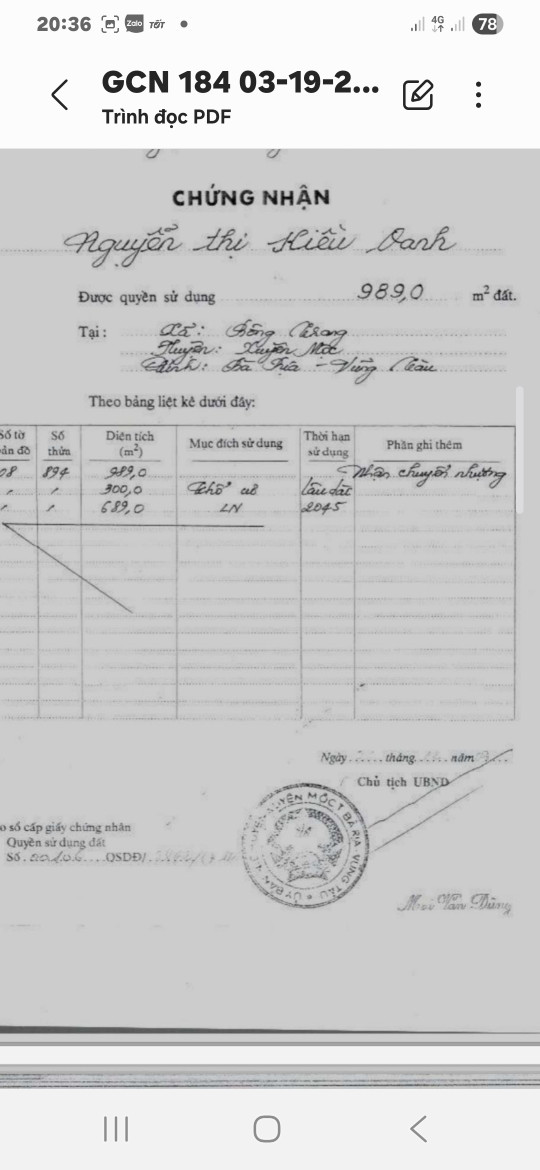 20:36 Zalo TỐT 4G 78
GCN 184 03-19-2...
Trình đọc PDF
CHỨNG NHẬN
Nguyễn thị Kiều Oanh
Được quyền sử dụng 989,0 m² đất.
Tại: Xã: Bông Trang
Huyện: Xuyên Mộc
Tỉnh: Bà Rịa - Vũng Tàu
Theo bảng liệt kê dưới đây:
Số tờ bản đồ Số thửa Diện tích (m²) Mục đích sử dụng Thời hạn sử dụng Phần ghi thêm
08 894 989,0 Nhận chuyển nhượng
" " 300,0 Thổ cư lâu dài
" " 689,0 LN 2045
Ngày tháng năm
Chủ tịch UBND
o sổ cấp giấy chứng nhân
Quyền sử dụng đất
Số QSDĐ/
HUYỆN XUYÊN MỘC T. BÀ RỊA VŨNG TÀU ỦY BAN
Mai Văn Dũng